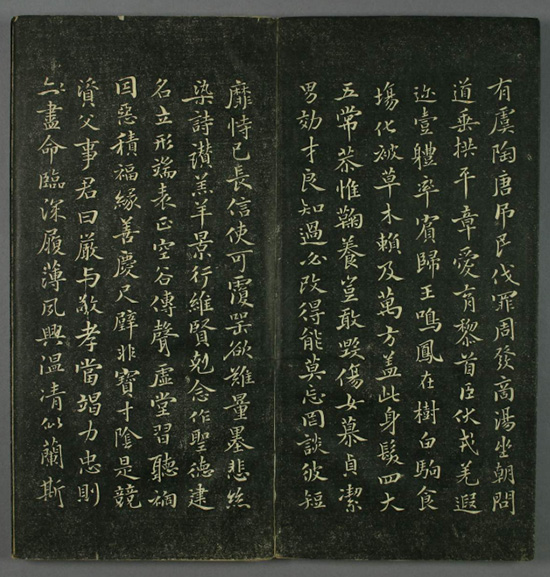 有虞陶唐吊民伐罪周發商湯坐朝問
道垂拱平章愛育黎首臣伏戎羌遐
迩壹體率賓歸王鳴鳳在樹白駒食
場化被草木賴及萬方盖此身髮四大
五常恭惟鞠養豈敢毀傷女慕貞潔
男効才良知過必改得能莫忘罔談彼短
靡恃己長信使可覆器欲難量墨悲絲
染詩讃羔羊景行維賢剋念作聖德建
名立形端表正空谷傳聲虛堂習聽禍
因惡積福緣善慶尺璧非寶寸陰是競
資父事君曰嚴与敬孝當竭力忠則
盡命臨深履薄夙興溫凊似蘭斯